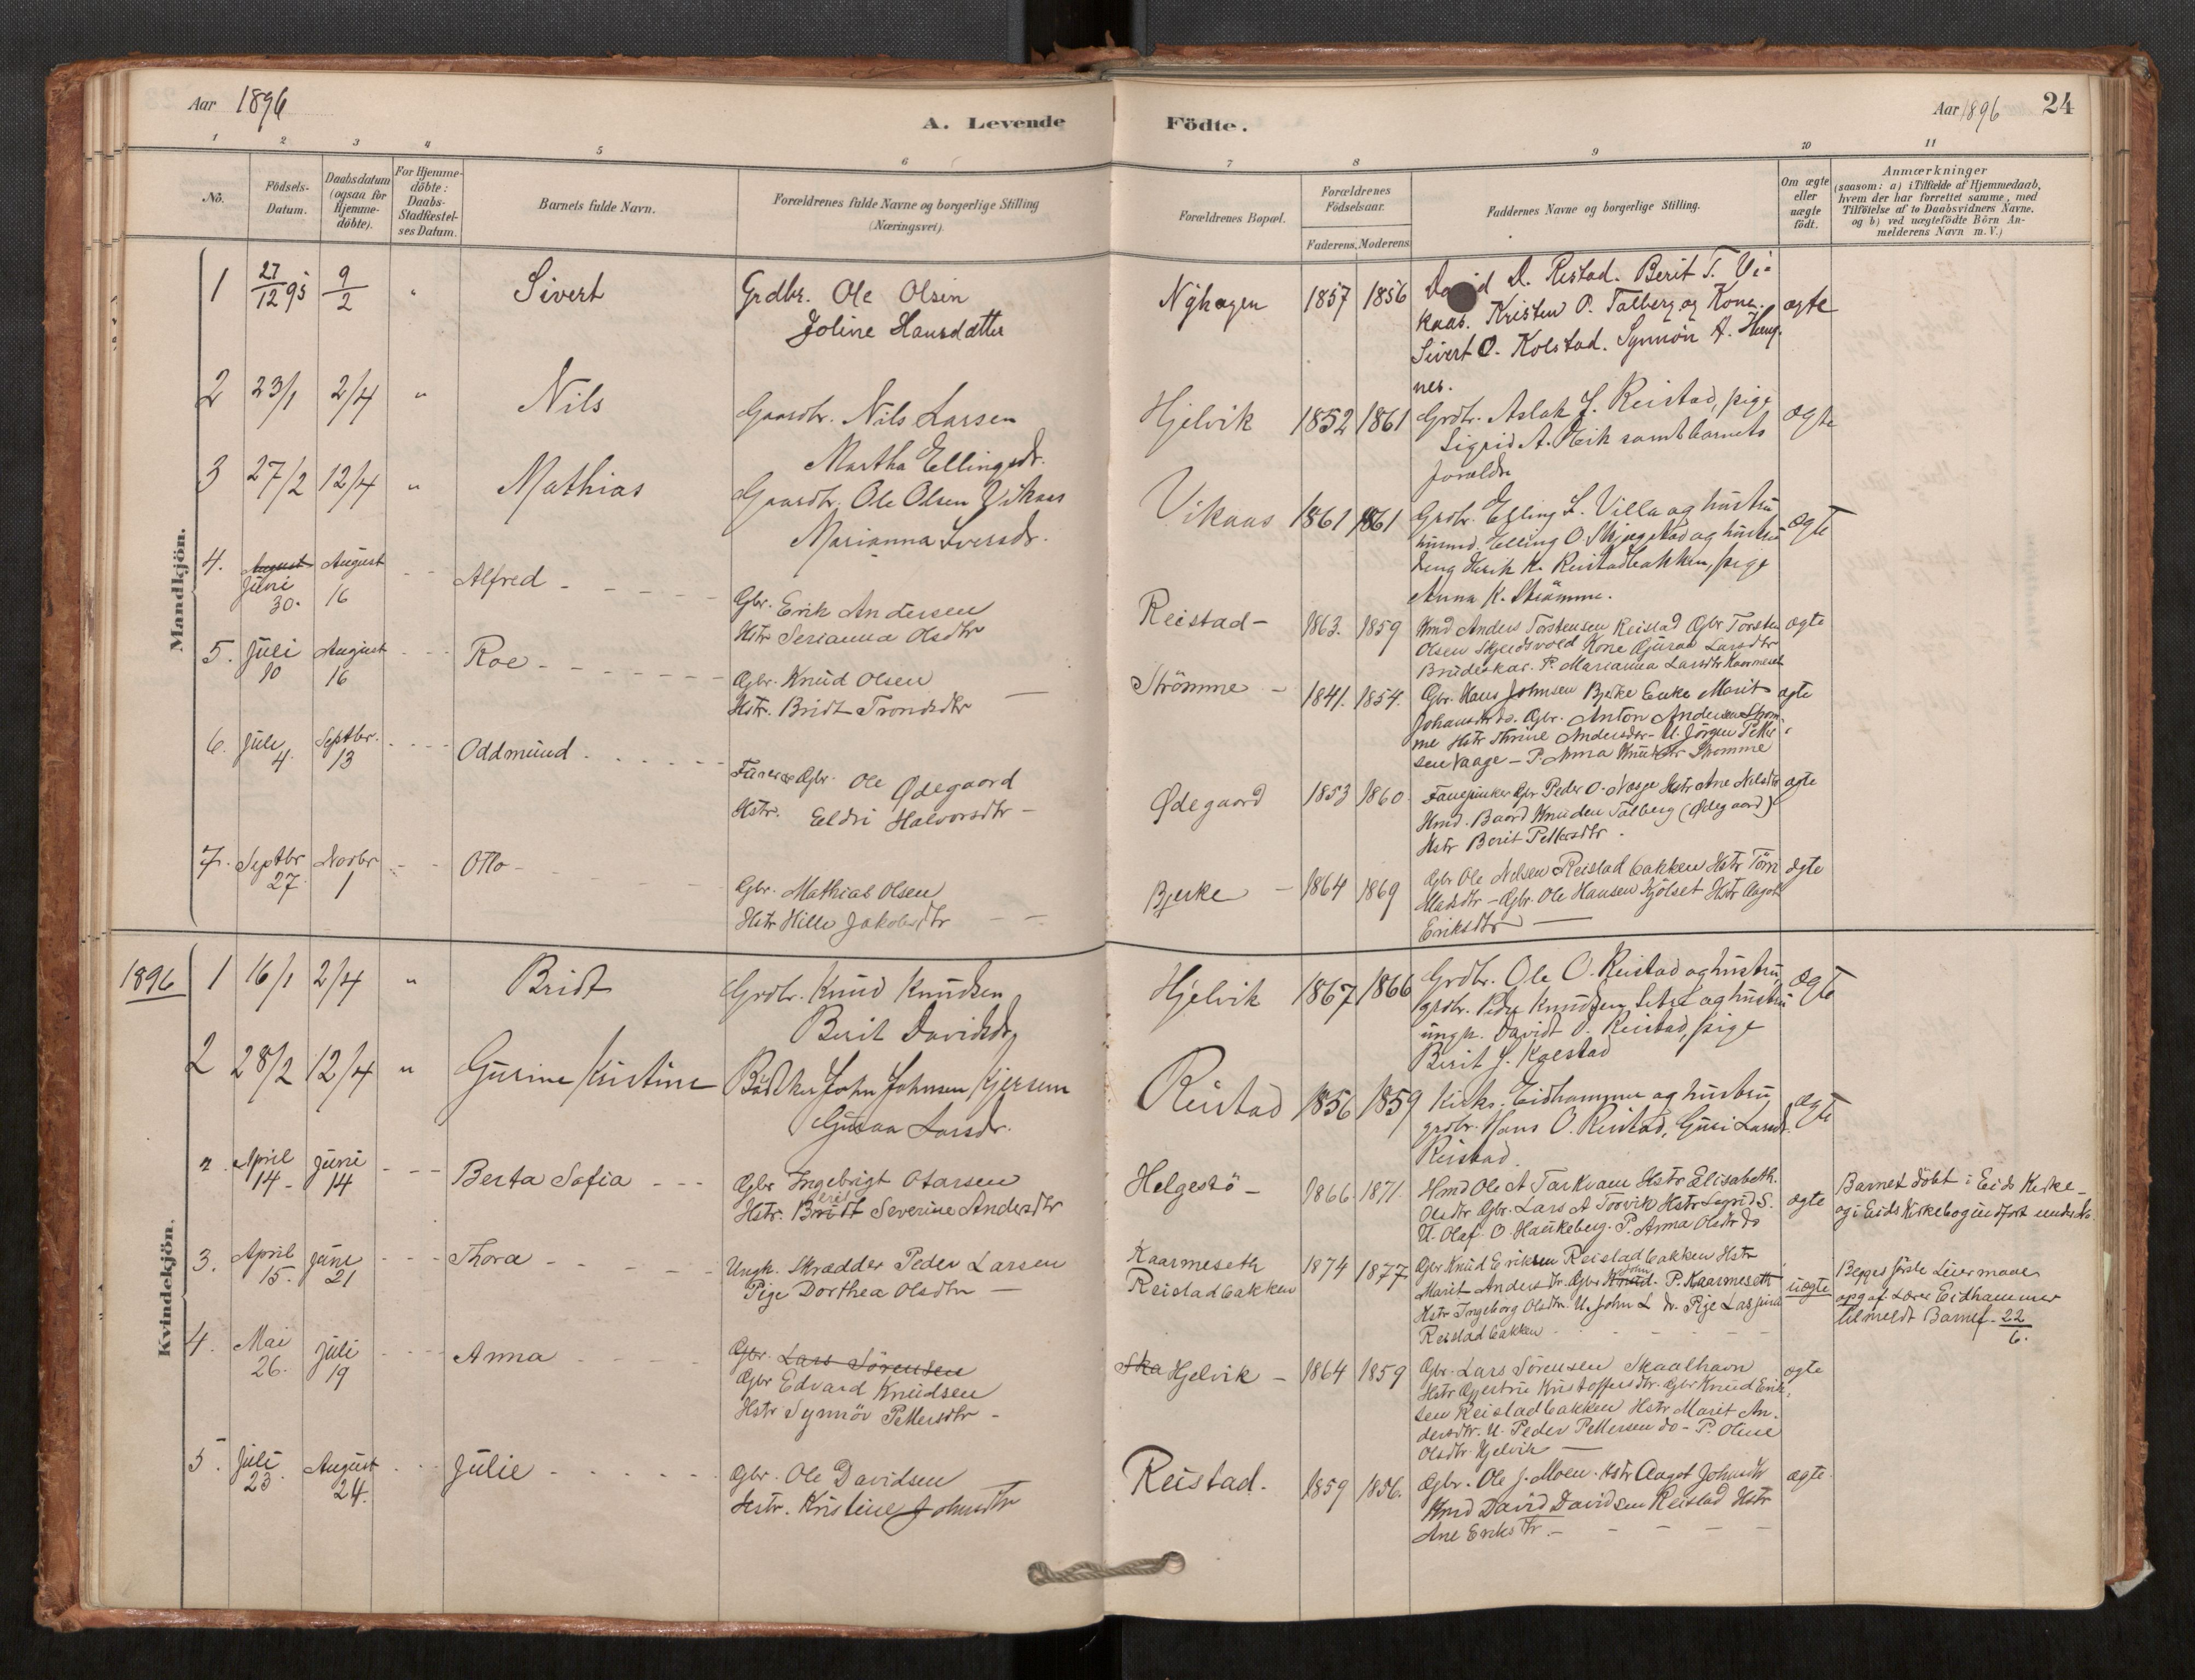 Aar 1896
A. Levende Födte.
Aar 1896 24
1 2 3 4 5 6 7 8 9 10 11
No.
Födsels-Datum.
Daabsdatum (ogsaa for Hjemme-döbte).
For Hjemme-döbte: Daabs-Stadfæstel-ses Datum.
Barnets fulde Navn.
Forældrenes fulde Navne og borgerlige Stilling
(Næringsvei).
Forældrenes Bopæl.
Forældrenes Födselsaar.
Faderens. Moderens.
Faddernes Navne og borgerlige Stilling.
Om ægte eller uægte födt.
Anmærkninger
(saasom: a) i Tilfælde af Hjemmedaab,
hvem der har forrettet samme, med
Tilföielse af to Daabsvidners Navne.
og b) ved uægtefödte Börn An-
melderens Navn m. V.)
Mandkjön.
1 27/12 95 9/2 " Sivert
Grdbr. Ole Olsen
Joline Hansdatter
Nyhagen 1857 1856
David D. Reistad. Berit T. Vi-
kaas. Kristen O. Talberg og Kone.
Sivert O. Kolstad. Synnön A. Haug-
nes.
ægte
2 23/1 2/4 " Nils
Gaardbr. Nils Larsen
Martha Ellingsdr.
Hjelvik 1852 1861
Grdbr. Aslak J. Reistad, pige
Sigrid A. Eik samt barnets
forældre
ægte
3 27/2 12/4 " Mathias
Gaardbr. Ole Olsen Vikaas
Marianna Iversdr.
Vikaas 1861 1861
Grdbr. Elling L. Villa og hustru
husmd. Elling O. Skjegstad og hustru
K. Reistadbakken, pige
Anna K. Strömme.
ægte
4. August Juni 30. August 16 Alfred
Gbr. Erik Andersen
Hstr Serianna Olsdtr
Reistad - 1863. 1859
Hmd Anders Torstensen Reistad Gbr Torsten
Olsen Skjedsvold Kone Guraa Larsdtr
Brudeskar. P. Marianna Larsdtr Kaarmeseth
ægte
5. Juli 10 August 16 Roe
Gbr. Knud Olsen
Hstr. Bridt Trondsdtr
Strömme - 1841. 1854.
Gbr. Hans Johnsen Bjerke Enke Marit
Johansdtr do. Gbr. Anton Andersen Strom-
me Hstr Thrine Andersdtr - U. Jörgen Petter-
sen Vaage - P. Anna Knudsdtr Stromme
ægte
6. Juli 4 Septbr. 13 Oddmund
Gbr. Ole Ødegaard
Hstr. Eldri Halvorsdtr -
Ødegaard 1853 1860
Gbr Peder O. Vaage Hstr Ane Nilsdtr
Hmd. Baard Knudsen Talberg (Ødegaard)
Hstr Berit Pettersdtr.
ægte
7. Septbr 27. Novbr 1 Otto
Gbr. Mathias Olsen
Hstr Hille Jakobsdtr
Bjerke - 1864 1869
Gbr Ole Nilsen Reistadbakken Hstr Törri
Madsdtr - Gbr. Ole Hansen Kjölset Hstr Aagot
Eriksdtr
ægte
1896
Kvindekjön.
1 16/1 2/4 " Bridt
Grdbr. Knud Knudsen
Berit Davidsdr
Hjelvik 1867 1866
Grdbr. Ole O. Reistad og hustru,
grdbr. Peder Knudsen Setre og hustru
ungk. David O. Reistad, pige
Berit J. Kolstad
ægte
2 28/2 12/4 " Gurine Kristine
Bødker John Johnsen Kjersem
Guraa Larsdr.
Reistad 1856 1859
Kirks. Eidhammer og hustru,
grdbr. Hans O. Reistad, Guri Larsdr.
Reistad.
ægte
2. April 14 - Juni 14 Berta Sofia
Gbr Ingebrigt Otarsen
Hstr. Bridt Berit Severine Andersdtr
Helgestö - 1866 1871
Hmd Ole A Tarkvam Hstr Elisabeth
Olsdtr Gbr. Lars A Torvik Hstr Sigrid S.
U. Olaf O. Haukeberg. P. Anna Olsdtr do
ægte
Barnet döbt i Eids Kirke -
og i Eids Kirkebog indfört under No.
3. April 15. Juni 21 Thora
Ungk. Skrædder Peder Larsen
Pige Dorthea Olsdtr -
Kaarmeseth
Reistadbakken
1874 1877
Gbr Knud Eriksen Reistadbakken Hstr
Marit Andersdtr. Gbr Knud John P. Kaarmeseth
Hstr Ingeborg Olsdtr. U. John L do. Pige
Reistadbakken
uægte
Begges förste Leiermaal
opg af Lærer Eidhammer
tilmeldt Barnet 22/6.
4. Mai 26. Juli 19 Anna
Gbr. Lars Sörensen
Gbr Edvard Knudsen
Hstr Synnöv Pettersdtr -
Ska Hjelvik - 1864 1859
Gbr. Lars Sörensen Skaalhavn
Hstr Gjertru Kristoffersdtr. Gbr Knud Erik-
sen Reistadbakken Hstr Marit An-
dersdtr. U. Peder Pettersen do - P. Oline
Olsdtr Hjelvik
ægte
5. Juli 23. August 24. Julie
Gbr. Ole Davidsen
Hstr. Kristine Johnsdtr
Reistad. 1859 1856.
Gbr. Ole J. Moen. Hstr Aagot Johnsdtr
Hmd David Davidsen Reistad Hstr
Ane Eriksdtr.
ægte